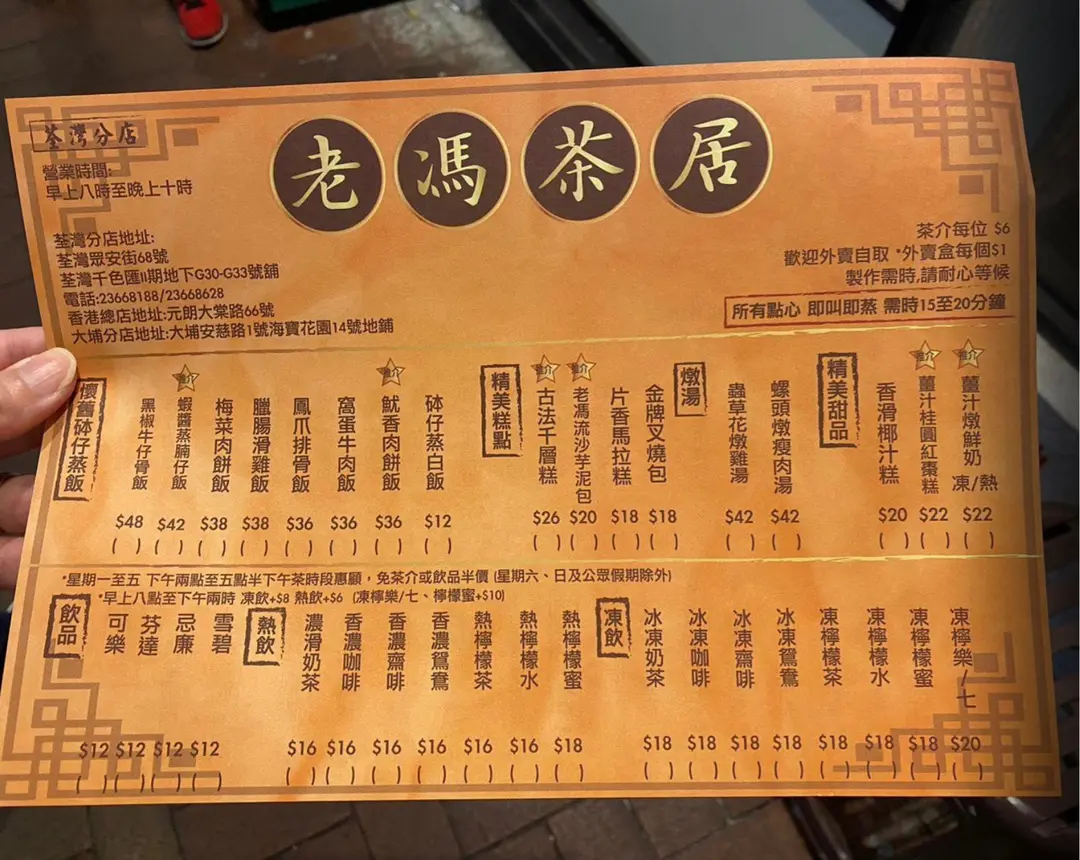 荃灣分店
老馮茶居
營業時間:
早上八時至晚上十時
荃灣分店地址:
荃灣眾安街68號
荃灣千色匯II期地下G30-G33號舖
電話:23668188/23668628
香港總店地址:元朗大棠路66號
大埔分店地址:大埔安慈路1號海寶花園14號地鋪
茶介每位 $6
歡迎外賣自取 *外賣盒每個$1
製作需時,請耐心等候
所有點心 即叫即蒸 需時15至20分鐘
懷舊砵仔蒸飯
黑椒牛仔骨飯 $48 ( )
推介 蝦醬蒸腩仔飯 $42 ( )
梅菜肉餅飯 $38 ( )
臘腸滑雞飯 $38 ( )
鳳爪排骨飯 $36 ( )
窩蛋牛肉飯 $36 ( )
推介 魷香肉餅飯 $36 ( )
砵仔蒸白飯 $12 ( )
精美糕點
推介 古法千層糕 $26 ( )
推介 老馮流沙芋泥包 $20 ( )
片香馬拉糕 $18 ( )
金牌叉燒包 $18 ( )
燉湯
蟲草花燉雞湯 $42 ( )
螺頭燉瘦肉湯 $42 ( )
精美甜品
香滑椰汁糕 $20 ( )
推介 薑汁桂圓紅棗糕 $22 ( )
推介 薑汁燉鮮奶 凍/熱 $22 ( )
*星期一至五 下午兩點至五點半下午茶時段惠顧，免茶介或飲品半價 (星期六、日及公眾假期除外)
*早上八點至下午兩時 凍飲+$8 熱飲+$6 (凍檸樂/七、檸檬蜜+$10)
飲品
可樂 $12 ( )
芬達 $12 ( )
忌廉 $12 ( )
雪碧 $12 ( )
熱飲
濃滑奶茶 $16 ( )
香濃咖啡 $16 ( )
香濃齋啡 $16 ( )
香濃鴛鴦 $16 ( )
熱檸檬茶 $16 ( )
熱檸檬水 $16 ( )
熱檸檬蜜 $18 ( )
凍飲
冰凍奶茶 $18 ( )
冰凍咖啡 $18 ( )
冰凍齋啡 $18 ( )
冰凍鴛鴦 $18 ( )
凍檸檬茶 $18 ( )
凍檸檬水 $18 ( )
凍檸檬蜜 $18 ( )
凍檸樂/七 $20 ( )